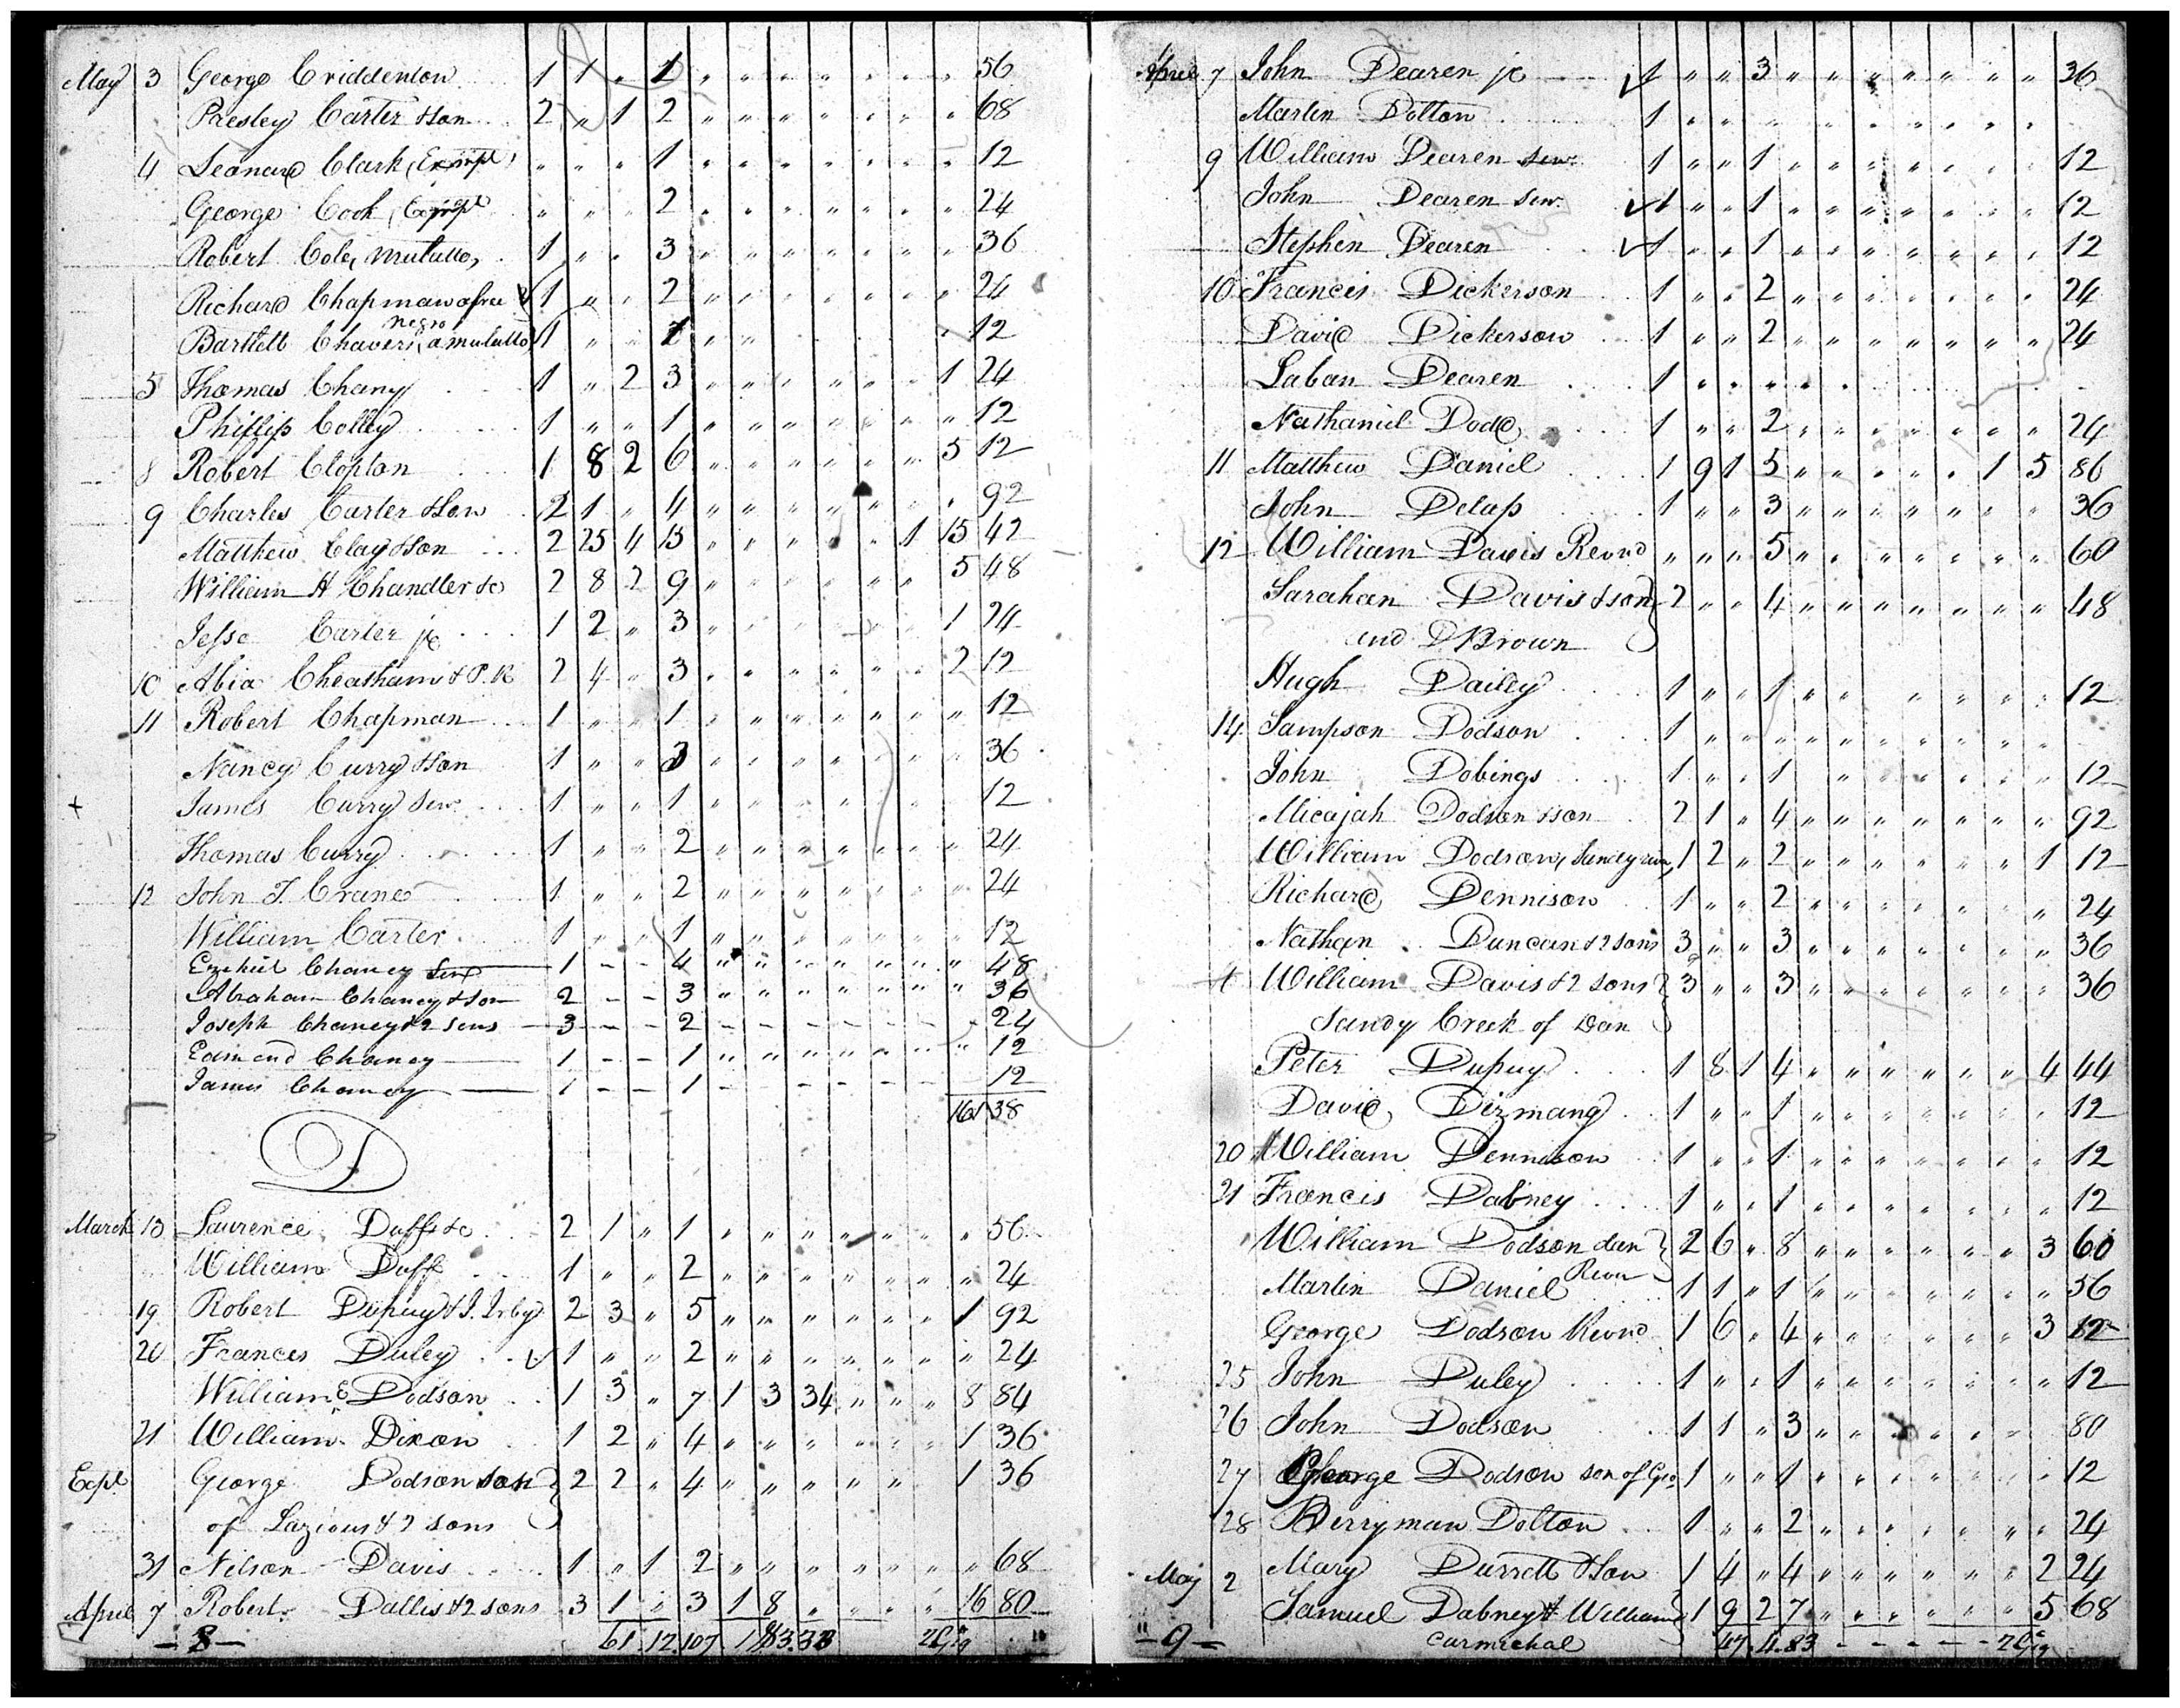 May 3 George Criddenton 1 1 " 1 " " " " " " " 56
Presley Carter & son 2 " 1 2 " " " " " " " 68
4 Leonard Clark, Exmpt, " " " 1 " " " " " " " 12
George Cook, Exmpt " " " 2 " " " " " " " 24
Robert Cole, mulatto, 1 " " 3 " " " " " " " 36
Richard Chapman a free √ 1 " " 2 " " " " " " " 24
negro
Bartlett Chavers, a mulatto √ 1 " " 1 " " " 12
5 Thomas Chany 1 " 2 3 " " " " " " 1 24
Phillip Colley 1 " " 1 " " " " " " " 12
8 Robert Clopton 1 8 2 6 " " " " " " 5 12
9 Charles Carter & son 2 1 " 4 " " " " " " " 92
Matthew Clay & son 2 25 4 15 " " " " " 1 15 42
William H Chandler &c 2 8 2 9 " " " " " " 5 48
Jesse Carter jr 1 2 " 3 " " " " " " 1 24
10 Abia Cheatham & P. R 2 4 " 3 " " " " " " 2 12
11 Robert Chapman 1 " " 1 " " " " " " " 12
Nancy Curry & son 1 " " 3 " " " " " " " 36
+ James Curry Senr 1 " " 1 " " " " " " " 12
Thomas Curry 1 " " 2 " " " " " " " 24
12 John T. Crane 1 " " 2 " " " " " " " 24
William Carter 1 " " 1 " " " " " " " 12
Ezekiel Chaney Senr 1 - - 4 " " " " " " " 48
Abraham Chaney & son 2 - - 3 " " " " " " " 36
Joseph Chaney & 2 sons 3 - - 2 - - - - - - - 24
Edmond Chaney 1 - - 1 " " " " " " " 12
James Chaney 1 - - 1 - - - - - - 12
161 38
D
March 13 Laurence Duff &c 2 1 " 1 " " " " " " " 56
William Duff 1 " " 2 " " " " " " " 24
19 Robert Dupuy & J. Irby 2 3 " 5 " " " " " " 1 92
20 Frances Duley √ 1 " " 2 " " " " " " " 24
William E Dodson 1 3 " 7 1 3 34 " " " 8 84
21 William Dixon 1 2 " 4 " " " " " " 1 36
Exp't George Dodson son } 2 2 " 4 " " " " " " 1 36
of Lazious & 2 sons
31 Nelson Davis 1 " 1 2 " " " " " " " 68
April 7 Robert Dallis & 2 sons 3 1 " 3 1 8 " " " " 16 80
- 8 - 61. 12. 107 2 Gig
April 7 John Dearen jr √ 1 " " 3 " " " " " " " 36
Martin Dolton 1 " " " " " " " " "
9 William Dearen senr 1 " " 1 " " " " " " " 12
John Dearen senr √ 1 " " 1 " " " " " " " 12
Stephen Dearen √ 1 " " 1 " " " " " " " 12
10 Francis Dickerson 1 " " 2 " " " " " " " 24
David Dickerson 1 " " 2 " " " " " " " 24
Laban Dearen 1 " " " " "
Nathaniel Dodd 1 " " 2 " " " " " " " 24
11 Matthew Daniel 1 9 1 5 " " " " " 1 5 86
John Delap 1 " " 3 " " " " " " " 36
12 William Davis Revnd " " " 5 " " " " " " " 60
Sarahan Davis & son } 2 " " 4 " " " " " " " 48
and D Brown
Hugh Dailey 1 " " 1 " " " " " " 12
14 Sampson Dodson 1 " " " " " " " " "
John Dobings 1 " " 1 " " " " " " 12
Micajah Dodson & son 2 1 " 4 " " " " " " " 92
William Dodson, Sandy river 1 2 " 2 " " " " " " 1 12
Richard Dennison 1 " " 2 " " " " " " " 24
Nathan Duncan & 2 sons 3 " " 3 " " " " " " " 36
William Davis & 2 sons } 3 " " 3 " " " " " " " 36
Sandy Creek of Dan
Peter Dupuy 1 8 1 4 " " " " " " 4 44
David Dizmang 1 " " 1 " " " " " " " 12
20 William Dennison 1 " " 1 " " " " " " " 12
21 Francis Dabney 1 " " 1 " " " " " " " 12
William Dodson dan } 2 6 " 8 " " " " " " 3 60
River
Martin Daniel 1 1 " 1 " " " " " " " 56
George Dodson Revnd 1 6 " 4 " " " " " " 3 12
25 John Duley 1 " " 1 " " " " " " " 12
26 John Dodson 1 1 " 3 " " " " " " 80
27 George Dodson son of Geo. 1 " " 1 " " " " " " " 12
28 Berryman Dolton 1 " " 2 " " " " " " " 24
May 2 Mary Durrett & son 1 4 " 4 " " " " " " 2 24
Samuel Dabney & William 1 9 2 7 " " " " " " 5 68
- 9 - Carmichal 47. 4. 83 - - - - - 2 Gig